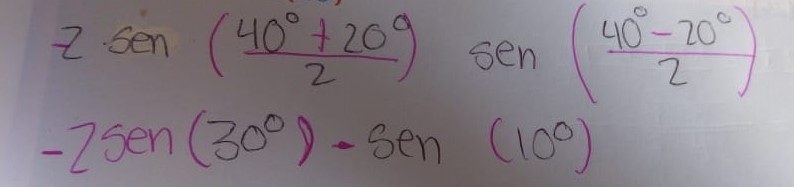 -2 sen (40° + 20° / 2) sen (40° - 20° / 2)
-2 sen (30°) · sen (10°)